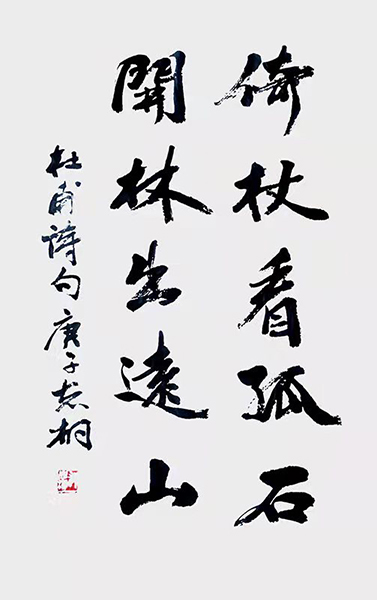 倚杖看孤石
開林出遠山
杜甫詩句庚子桐